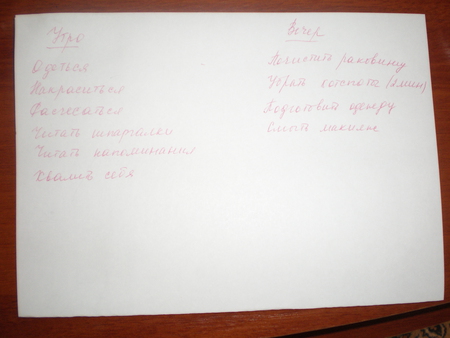 Утро
Одеться
Накраситься
Расчесаться
Читать шпаргалки
Читать напоминания
Хвалить себя
Вечер
Почистить раковину
Убрать (2мин)
Подготовить одежду
Смыть макияж